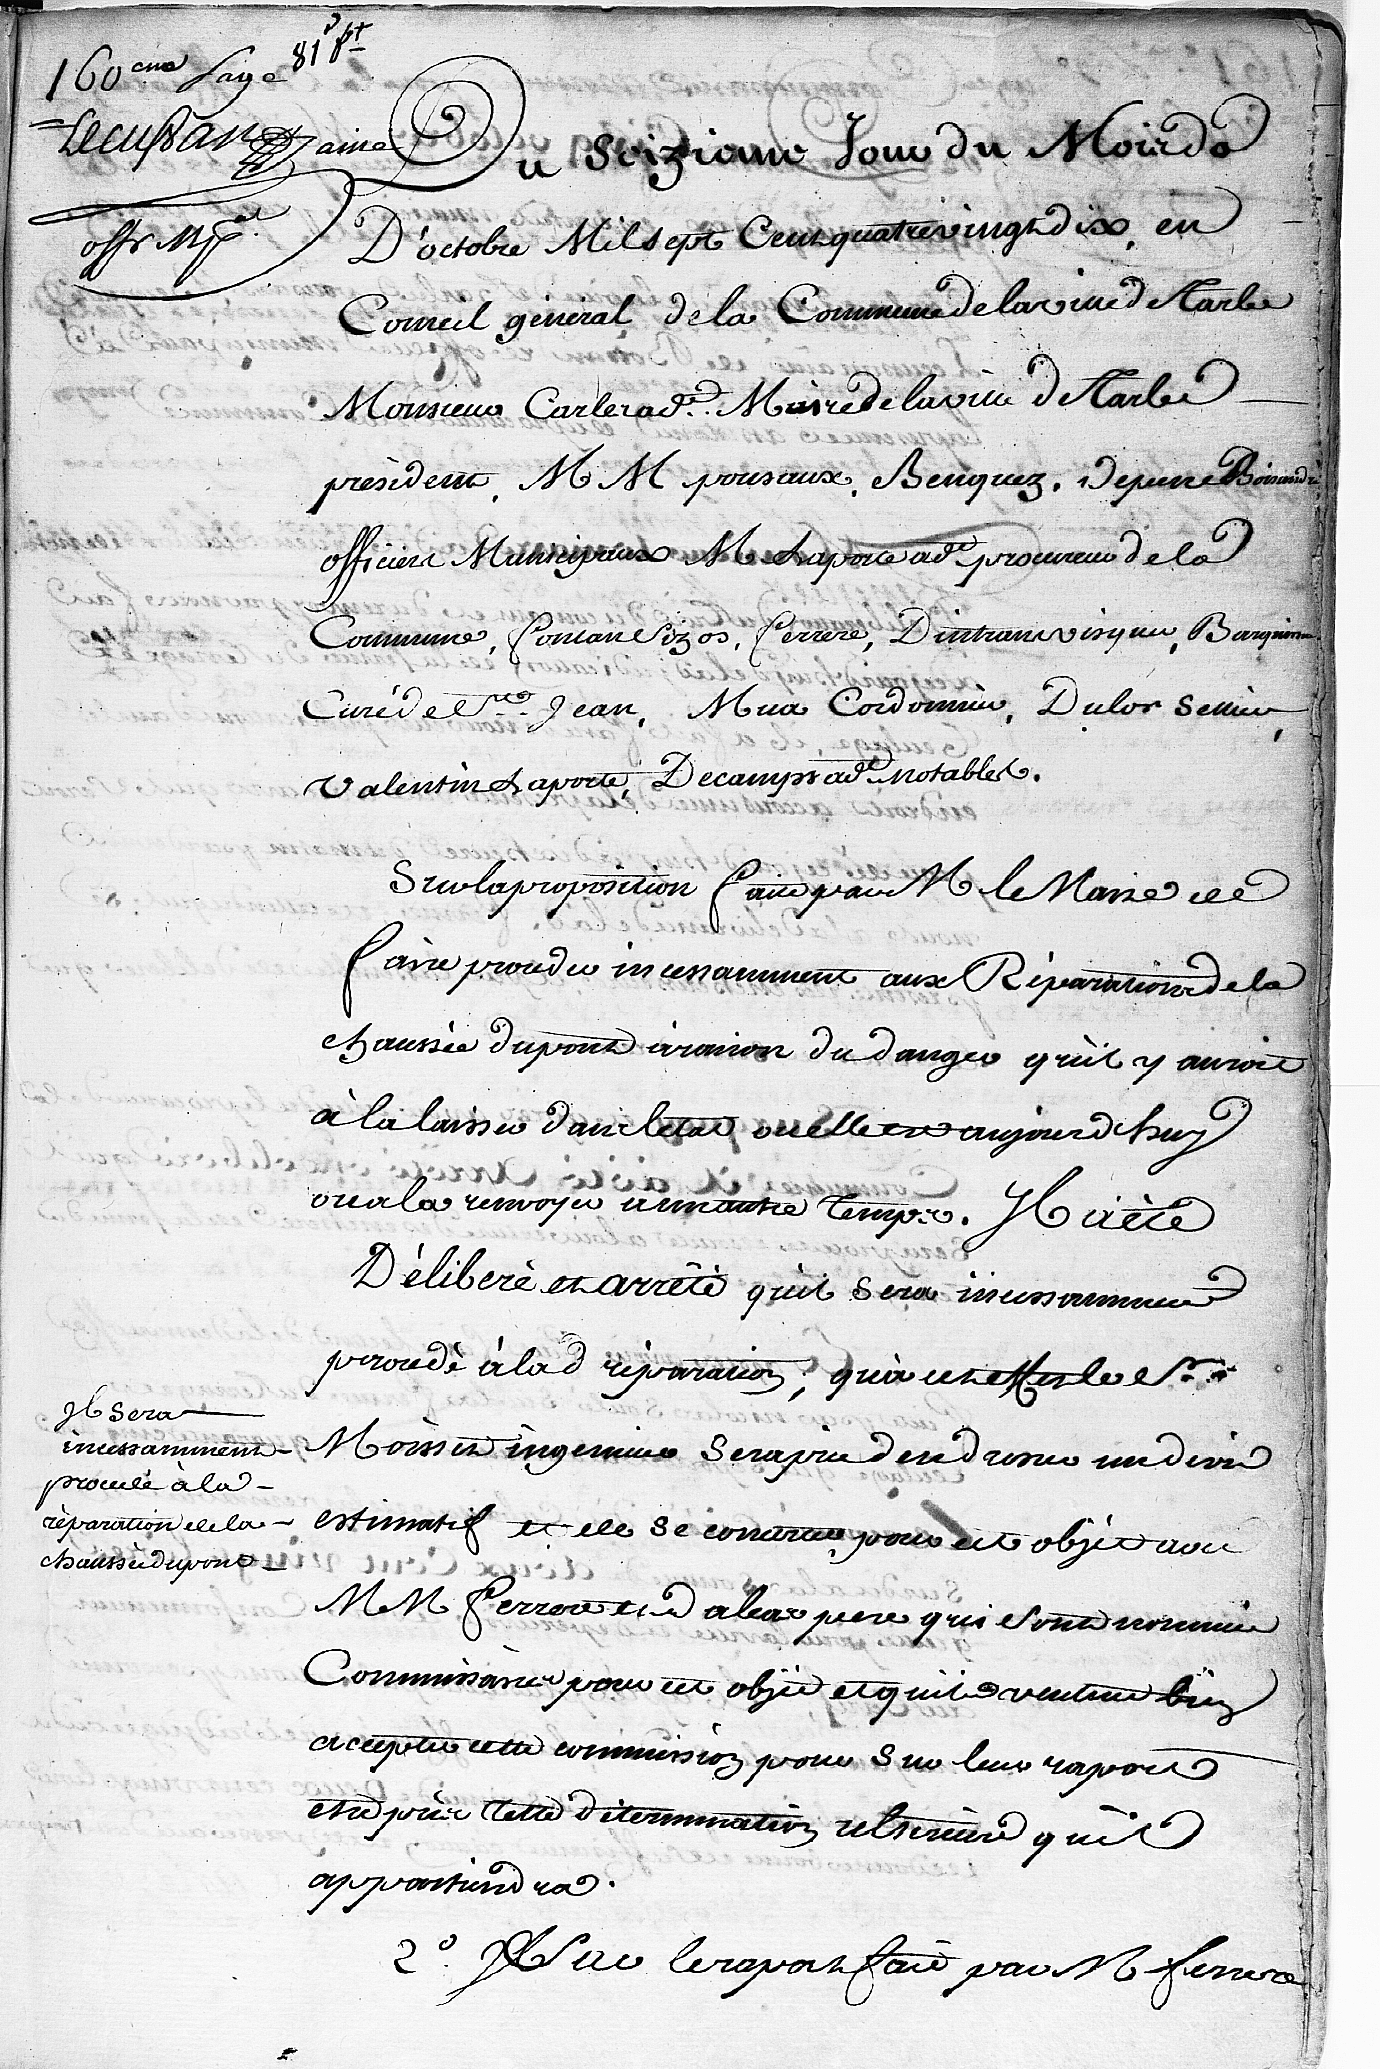 160eme page 81 ft
Lecussan aîné
offr Mpal
Du Seizieme Jour du Mois de
D'octobre Mil sept Cent quatre vingt dix, en
Conseil général de la Commune de la ville de Tarbe
Monsieur Carles adt. Maire de la ville de Tarbe
président, MM pousaux, Benquez, depene
officiers Municipaux M Laporte adt procureur de la
Commune, fontan Sizos, ferrere, Dintrans visquer,
Curé de St. Jean, Mua Cordonnier, Dulor Sellier,
valentin Laporte, Decamps adt notables.
Sur la proposition faite par M le Maire de
faire proceder incessamment aux Réparations de la
chaussée du pont à raison du danger qu'il y auroit
à la laisser dans letat ou elle est aujourdhuy
ou a la renvoyer a un autre temps. Il a été
Délibéré et arrêté qu'il sera incessamment
procedé à lad réparation, qu'à cet effet le Sr.
Moisset ingenieur sera prié den dresser un devis
estimatif et de se concerter pour cet objet avec
MM ferrere et dalear pere qui sont nommés
Commissaires pour cet objet et qui veulent bien
accepter cette commission pour sur leur raport
etre pris telle determination ulterieure qu'il
appartiendra.
Il sera
incessamment
procédé à la
réparation de la
chaussée du pont
2° Sur le raport fait par M ferrere